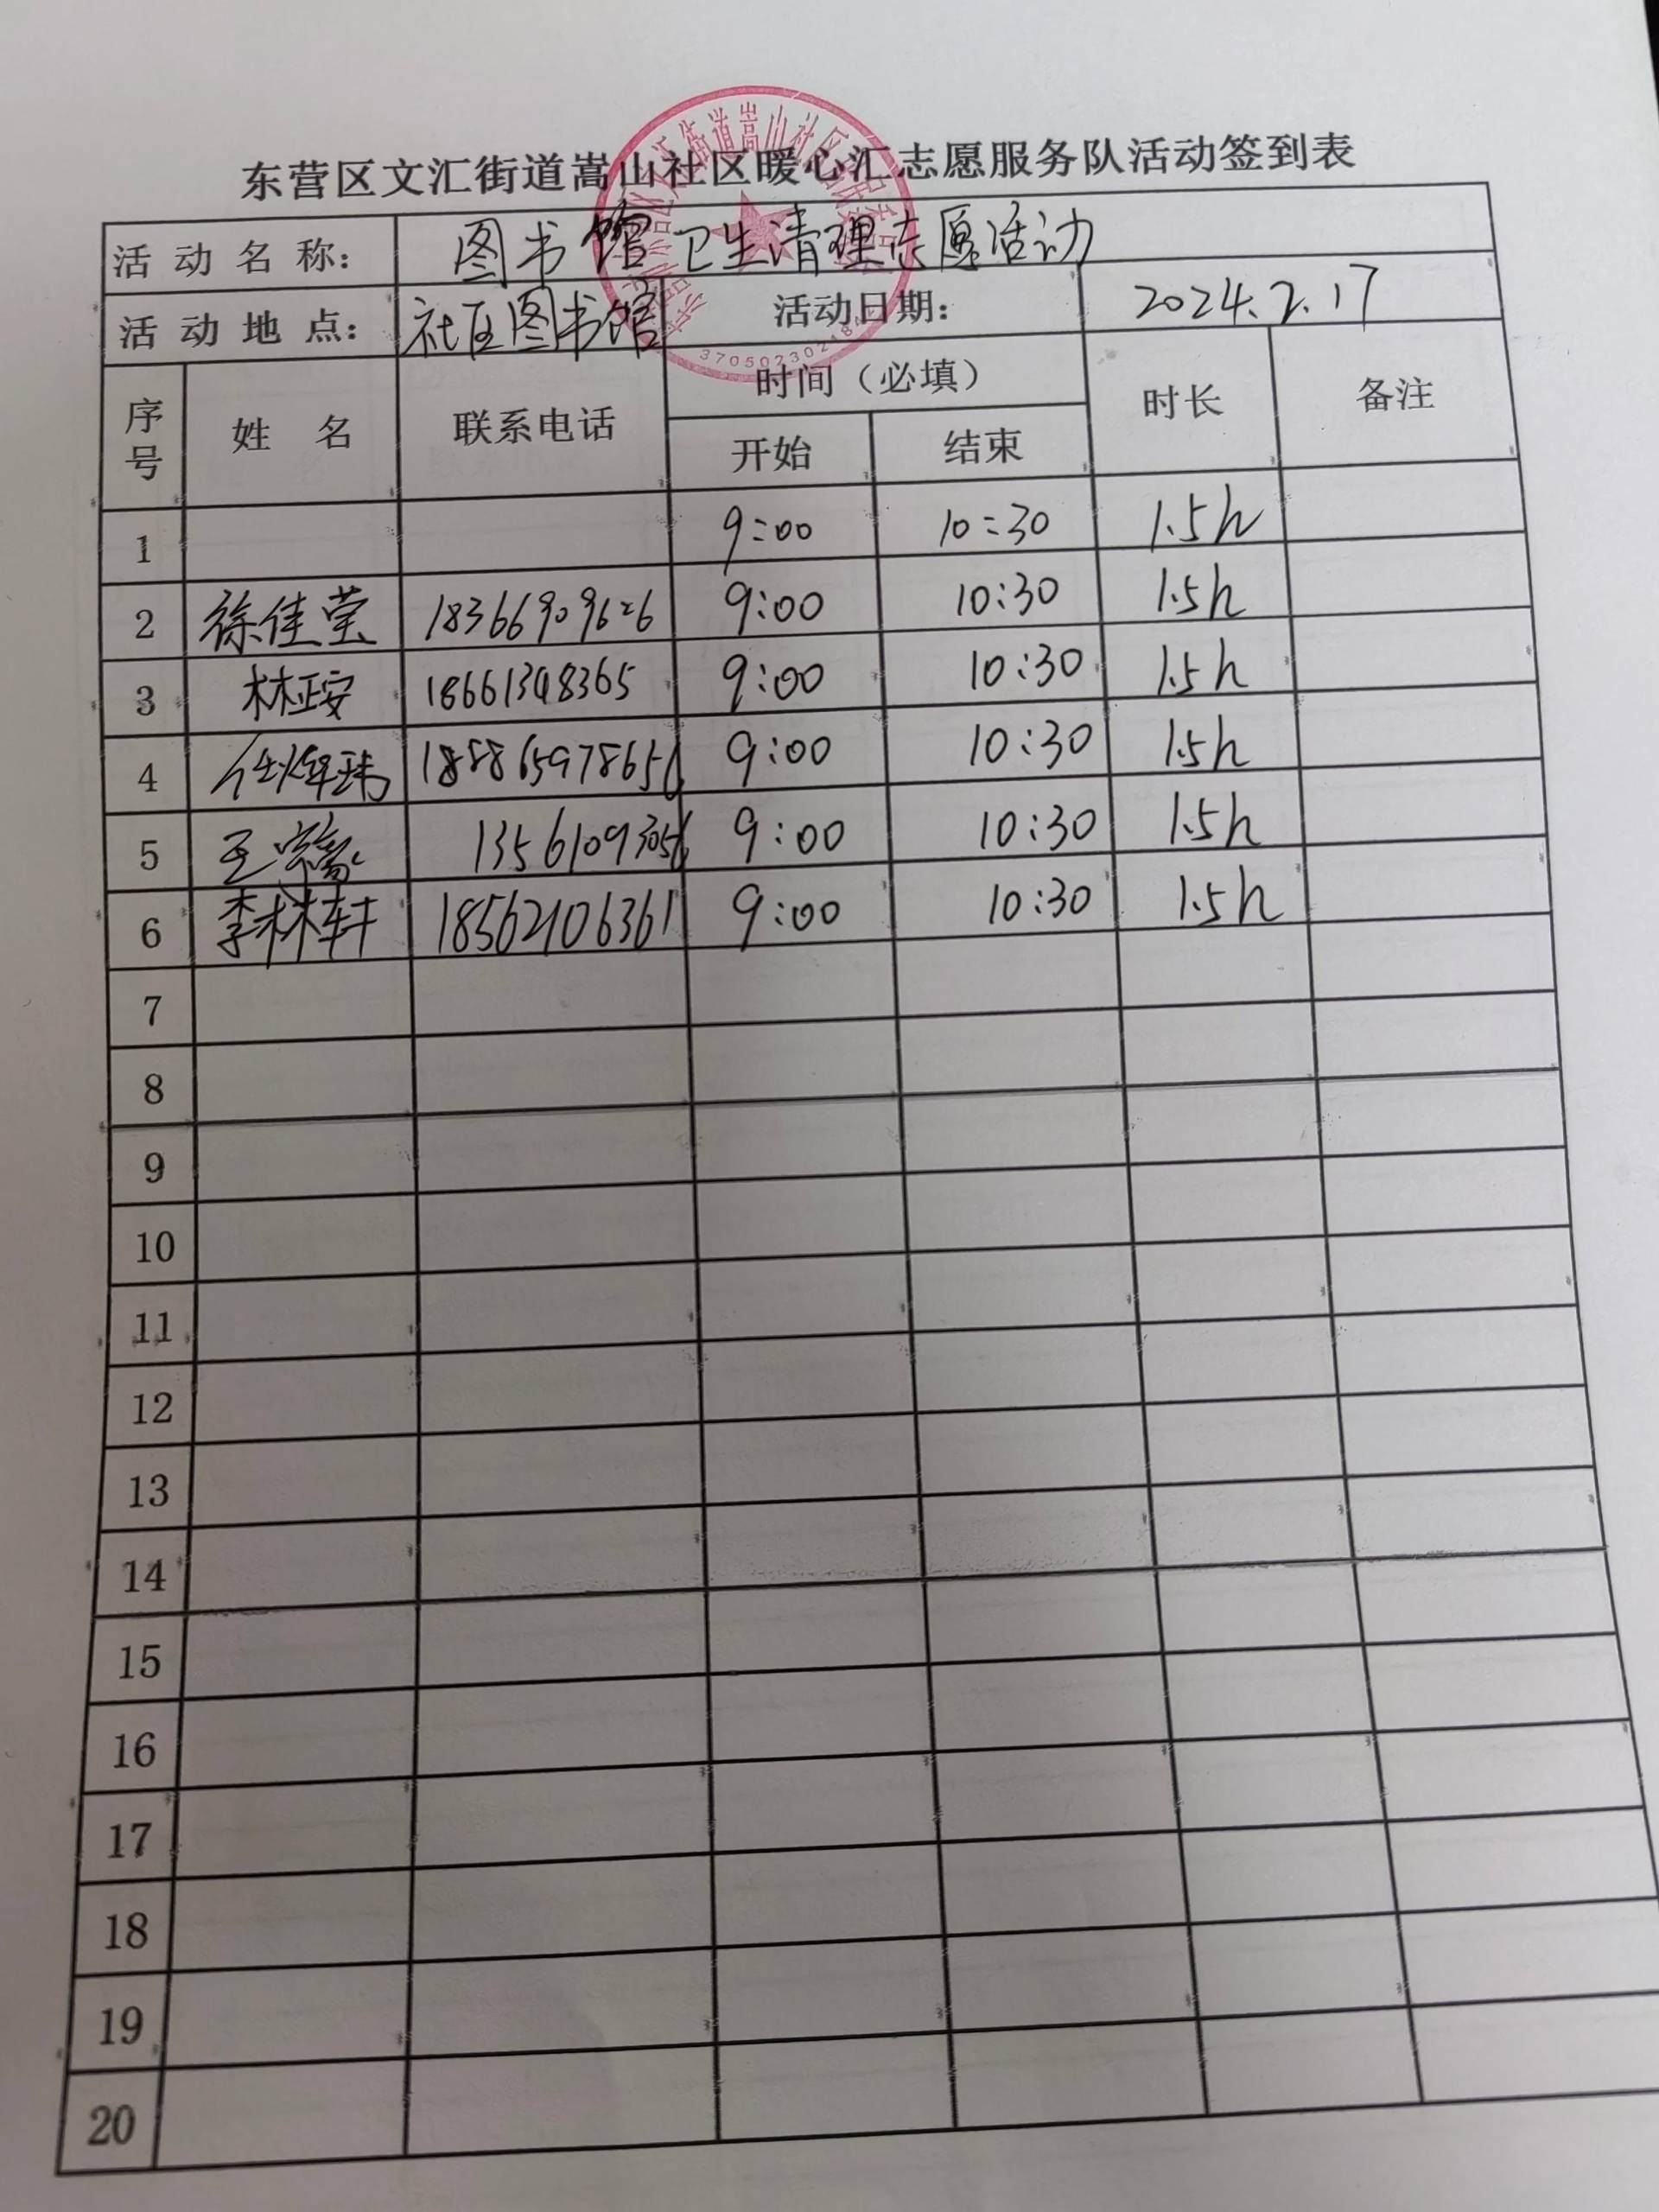 东营区文汇街道嵩山社区暖心汇志愿服务队活动签到表
活动名称： 图书馆卫生清理志愿活动
活动地点： 社区图书馆 活动日期： 2024.2.17
序号 姓名 联系电话 时间（必填） 时长 备注
开始 结束
1 9:00 10:30 1.5h
2 徐佳莹 18366909626 9:00 10:30 1.5h
3 林政安 18661348365 9:00 10:30 1.5h
4 任焯玮 9:00 10:30 1.5h
5 王 13561093056 9:00 10:30 1.5h
6 李林轩 18562106361 9:00 10:30 1.5h
7
8
9
10
11
12
13
14
15
16
17
18
19
20